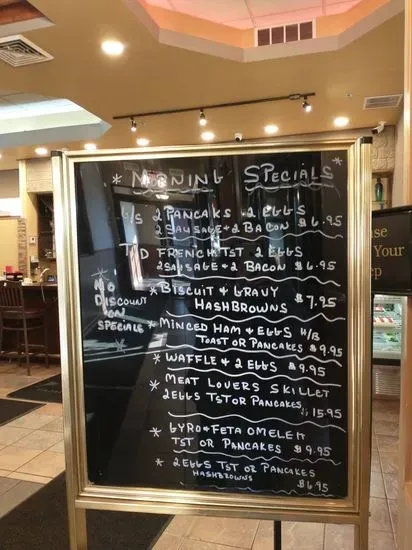 * MORNING SPECIALS *
G/S 2 PANCAKS 2 EGGS
2 SAUSAGE & 2 BACON $6.95
FRENCH TST 2 EGGS
2 SAUSAGE & 2 BACON $6.95
* BISCUIT & GRAVY
HASHBROWNS $7.95
* MINCED HAM & EGGS H/B
TOAST OR PANCAKES $9.95
* WAFFLE & 2 EGGS $9.95
* MEAT LOVERS SKILLET
2 EGGS TST OR PANCAKES
$15.95
* GYRO & FETA OMELET
TST OR PANCAKES $9.95
* 2 EGGS TST OR PANCAKES
HASHBROWNS $6.95
* NO
DISCOUNT
ON
SPECIALS
Your